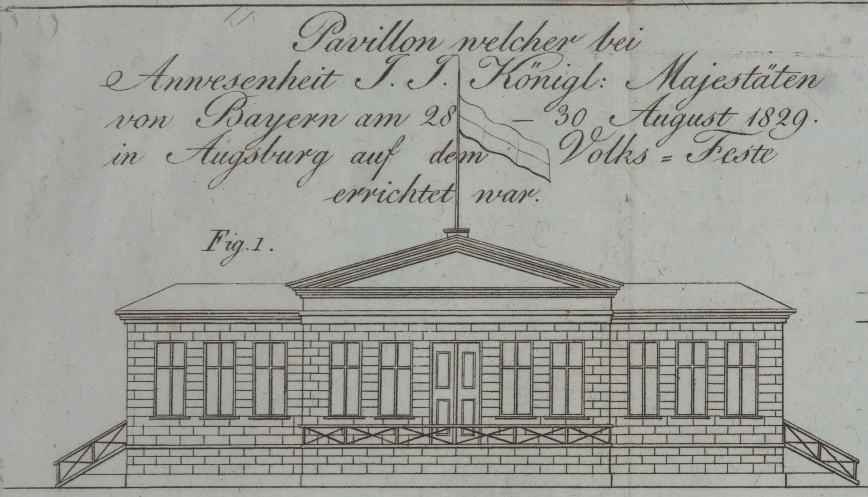 Pavillon welcher bei
Anwesenheit J. J. Königl: Majestäten
von Bayern am 28 – 30 August 1829.
in Augsburg auf dem Volks = Feste
errichtet war.
Fig. 1.